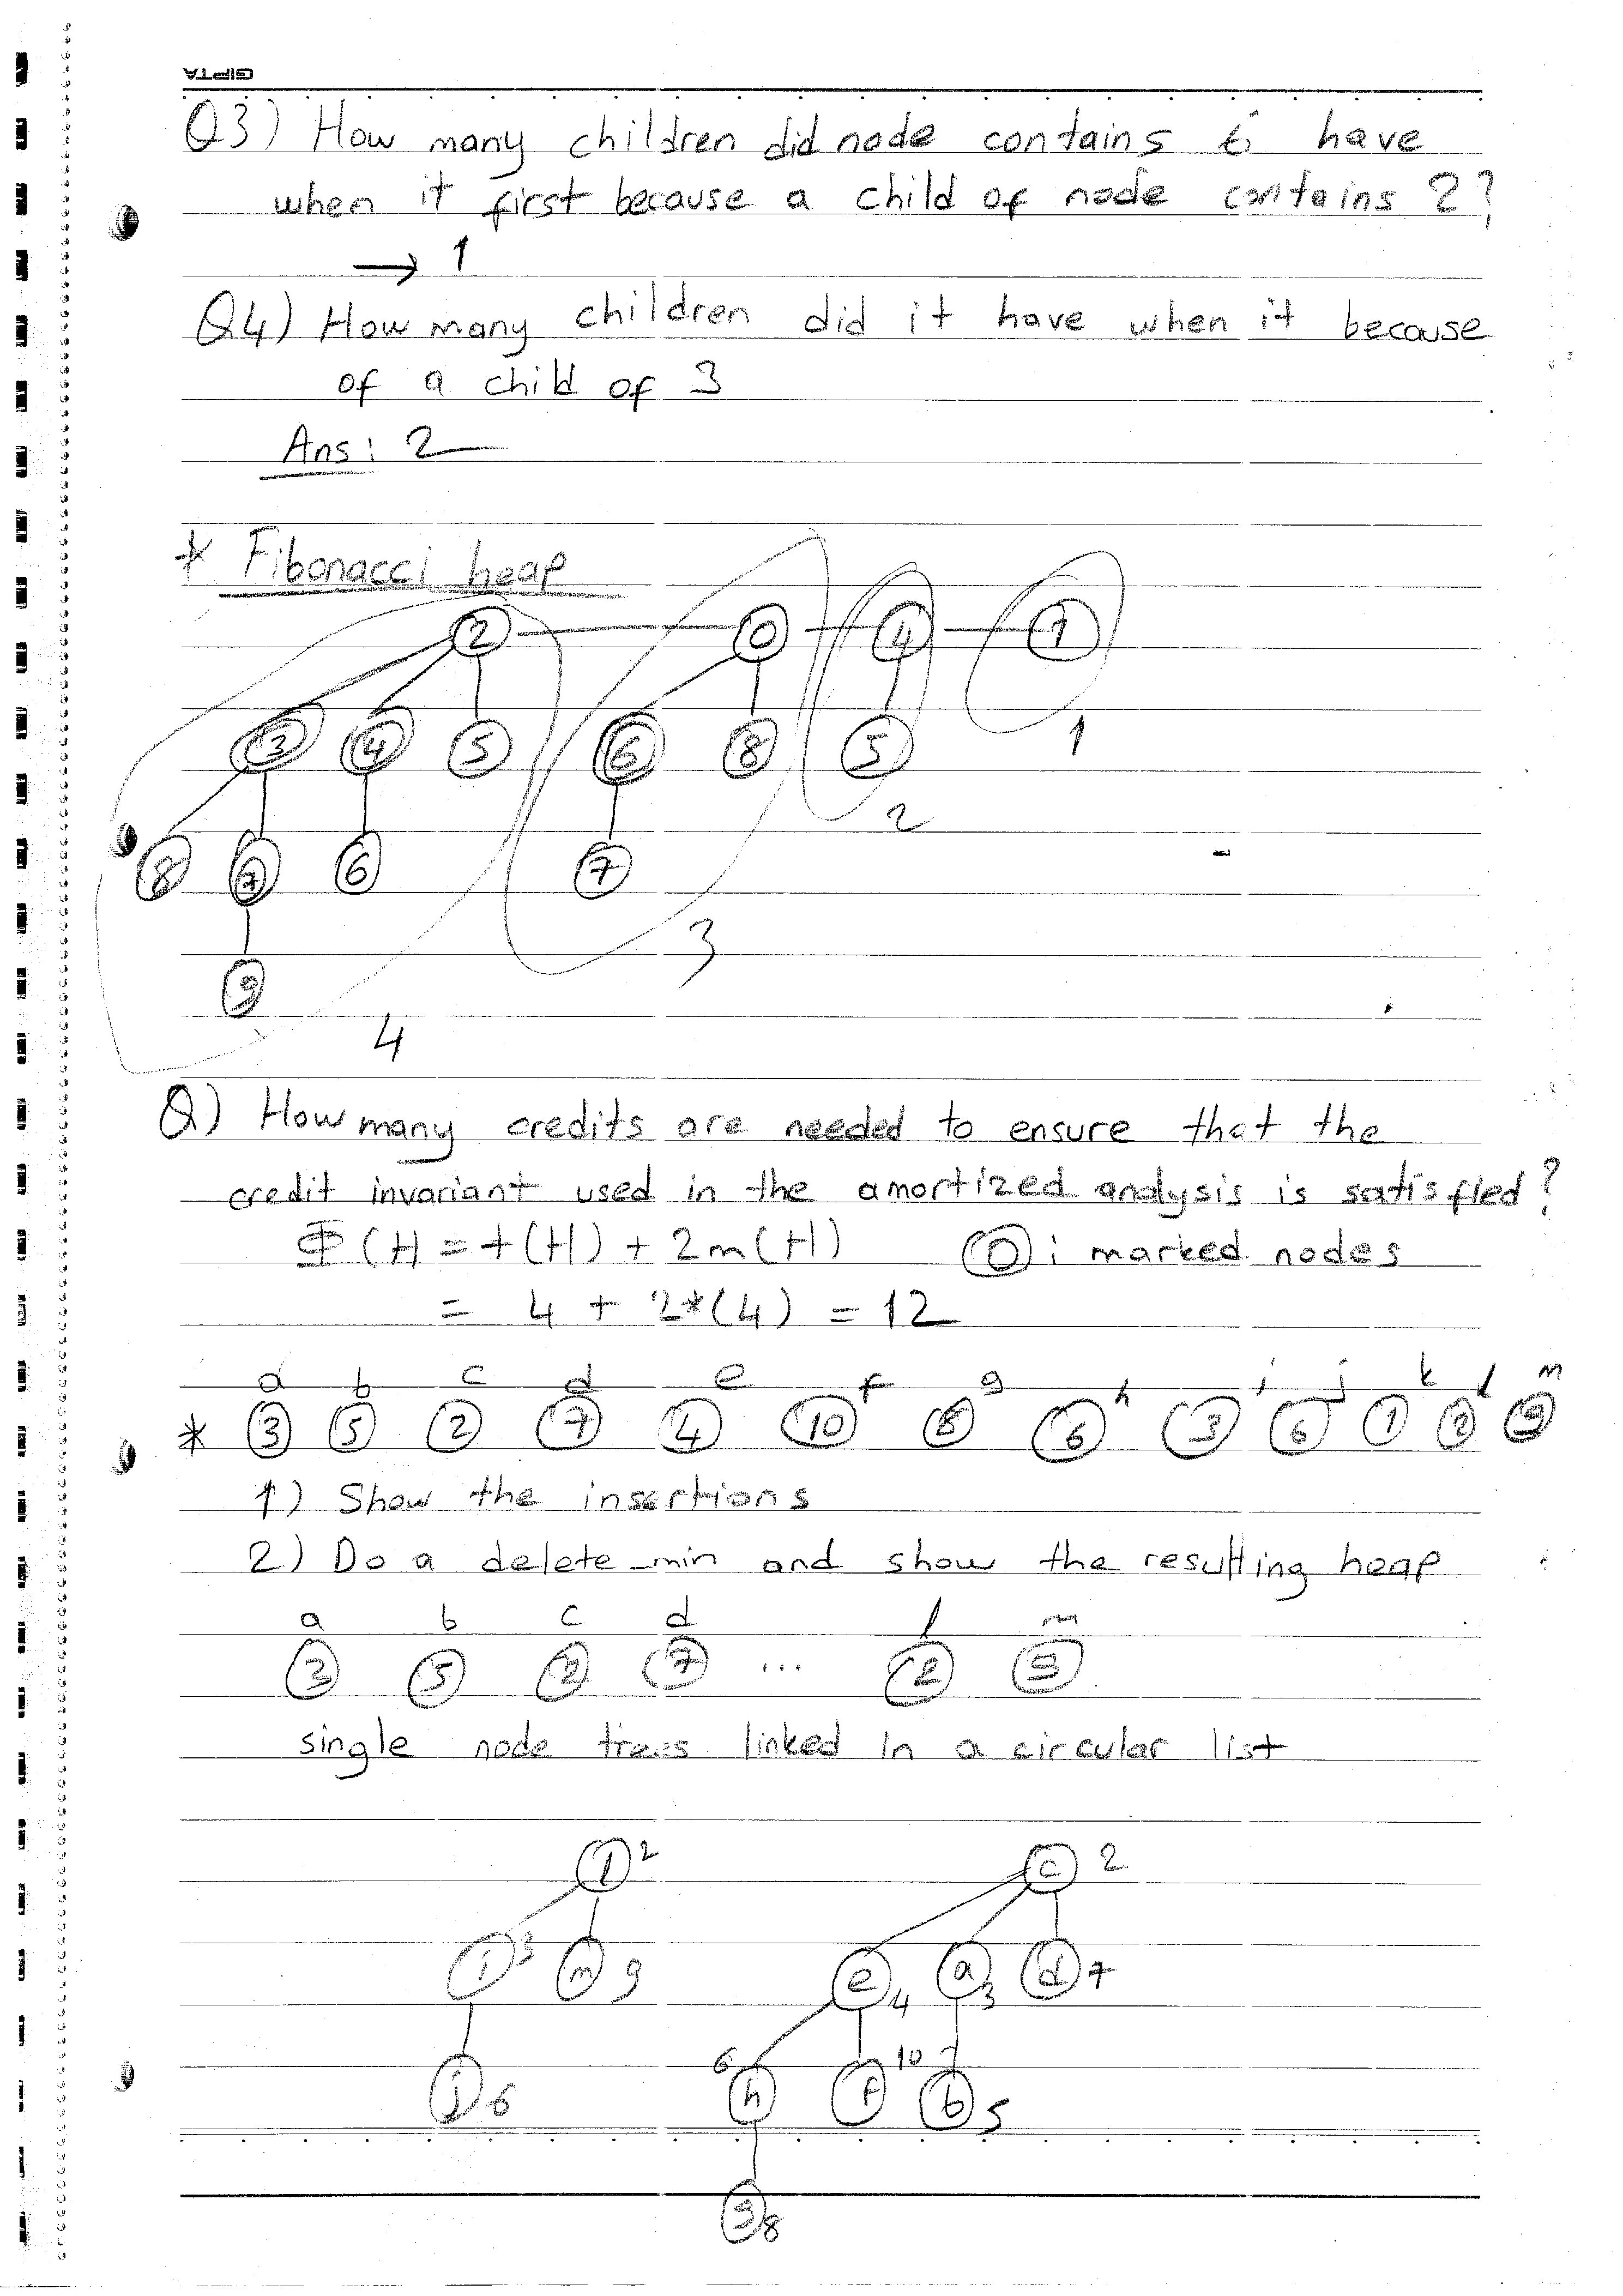 GIPTA
Q3) How many children did node contains 6 have
when it first because a child of node contains 2?
→ 1
Q4) How many children did it have when it because
of a child of 3
Ans: 2
* Fibonacci heap
2 0 4 1
3 4 5 6 8 5 1
8 7 6 7 2
9 3
4
Q) How many credits are needed to ensure that the
credit invariant used in the amortized analysis is satisfied?
Φ(H) = t(H) + 2m(H) O: marked nodes
= 4 + 2*(4) = 12
a b c d e f g h i j k l m
* 3 5 2 7 4 10 8 6 3 6 1 2 9
1) Show the insertions
2) Do a delete_min and show the resulting heap
a b c d l m
3 5 2 7 ... 2 9
single node trees linked in a circular list
l 2 c 2
i 3 m 9 e 4 a 3 d 7
j 6 6 h f 10 b 5
g 8